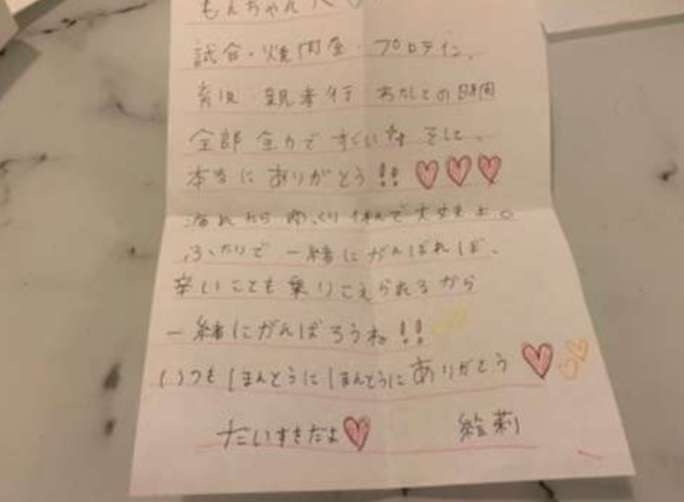 もんちゃんへ
試合・焼肉屋・プロテイン、
育児 親孝行 の時間
全部 全力で すごいな そして、
本当に ありがとう!!
疲れたら ゆっくり 休んで大丈夫よ。
ふたりで 一緒にがんばれば、
辛いことも乗りこえられるから
一緒にがんばろうね!!
いつもほんとうにほんとうにありがとう
だいすきだよ 絵莉